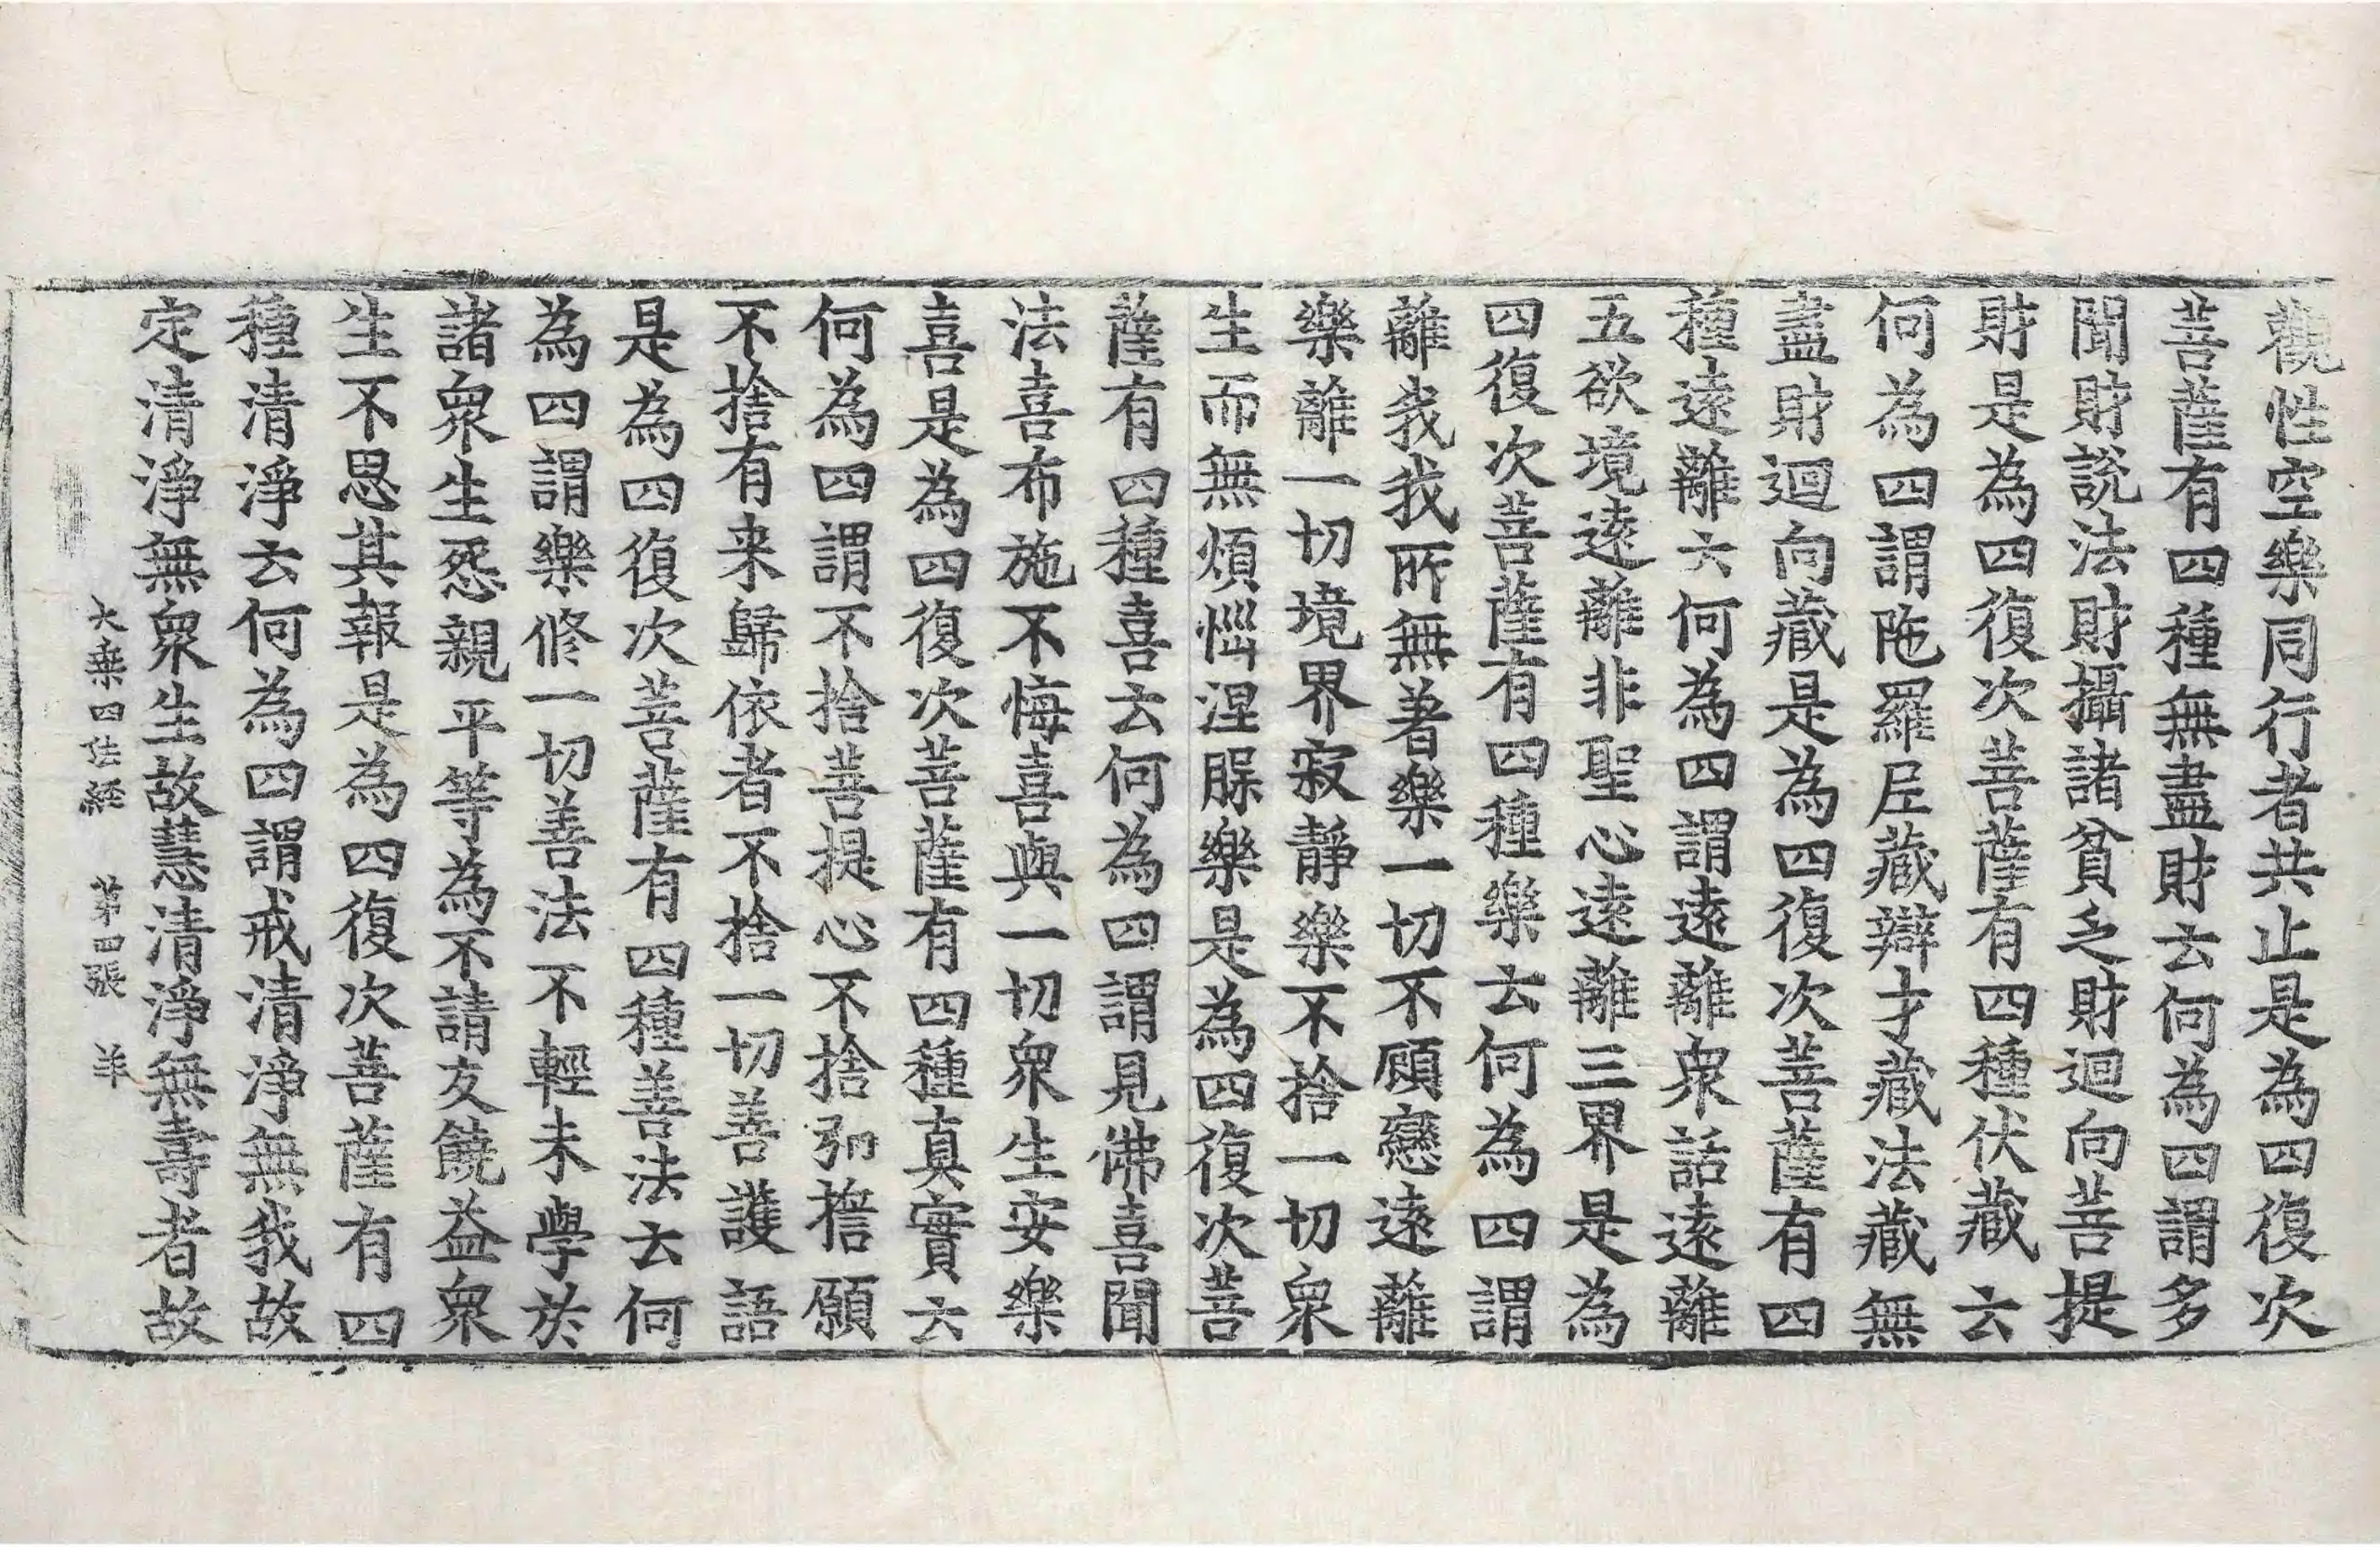 觀性空樂同行者共止是為四復次
菩薩有四種無盡財云何為四謂多
聞財說法財攝諸貧乏財迴向菩提
財是為四復次菩薩有四種伏藏云
何為四謂陁羅尼藏辯才藏法藏無
盡財迴向藏是為四復次菩薩有四
種遠離云何為四謂遠離衆話遠離
五欲境遠離非聖心遠離三界是為
四復次菩薩有四種樂云何為四謂
離我我所無著樂一切不顧戀遠離
樂離一切境界寂靜樂不捨一切衆
生而無煩惱涅槃樂是為四復次菩
薩有四種喜云何為四謂見佛喜聞
法喜布施不悔喜與一切衆生安樂
喜是為四復次菩薩有四種真實云
何為四謂不捨菩提心不捨弘誓願
不捨有来歸依者不捨一切善護語
是為四復次菩薩有四種善法云何
為四謂樂修一切善法不輕未學於
諸衆生怨親平等為不請友饒益衆
生不思其報是為四復次菩薩有四
種清淨云何為四謂戒清淨無我故
定清淨無衆生故慧清淨無壽者故
大乗四法経 第四張 羊